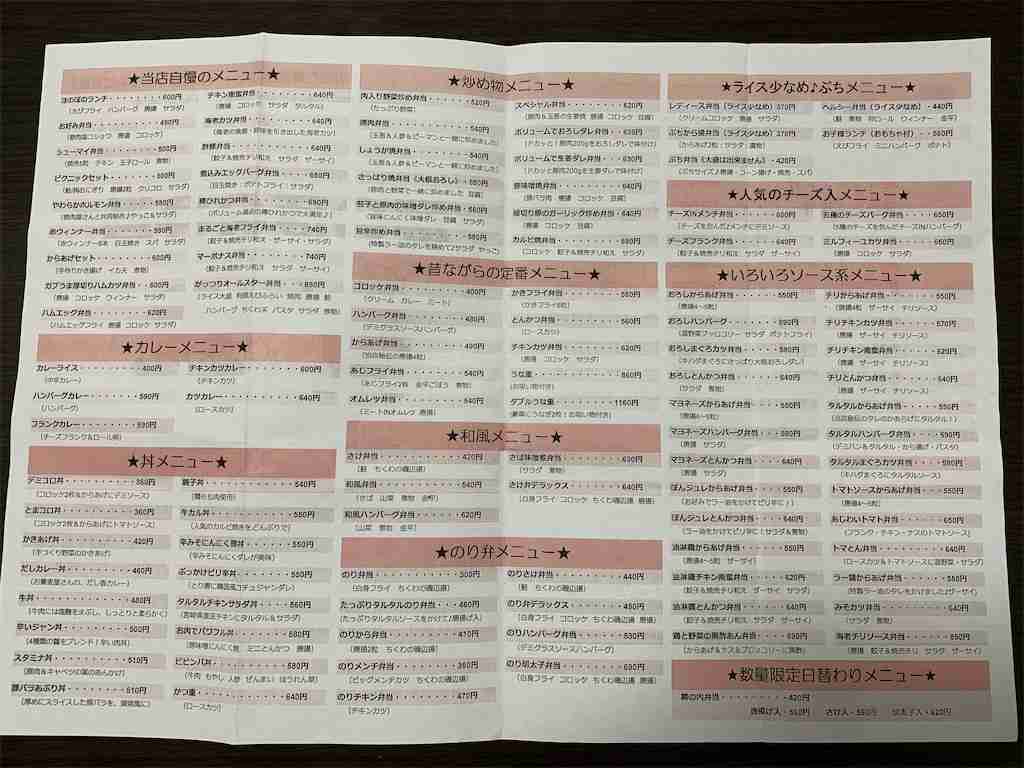 ★当店自慢のメニュー★
ほのぼのランチ・・・・・・600円
(えびフライ ハンバーグ 唐揚 サラダ)
お好み弁当・・・・・・・・490円
シューマイ弁当・・・・・・・580円
(焼売5粒 チキン 玉子ロール 煮物)
ピクニックセット・・・・・・580円
やわらかホルモン弁当・・・・580円
赤ウィンナー弁当・・・・・・550円
(赤ウィンナー8本 目玉焼き スパ サラダ)
からあげセット・・・・・・・600円
(手作りかき揚げ イカ天 煮物)
ガブうま厚切りハムカツ弁当・・・600円
(唐揚 コロッケ ウィンナー サラダ)
ハムエッグ弁当・・・・・・・620円
(ハムエッグフライ 唐揚 コロッケ サラダ)
チキン南蛮弁当・・・・・・・640円
(唐揚 コロッケ サラダ タルタル)
海老カツ弁当・・・・・・・・640円
酢豚弁当・・・・・・・・・640円
(餃子&焼売チリ和え サラダ ザーサイ)
煮込みエッグバーグ弁当・・・・650円
(目玉焼き ポテトフライ サラダ)
棒ひれかつ弁当・・・・・・・690円
(ボリューム満点の棒ひれかつで大満足♪)
まるごと海老フライ弁当・・・740円
(餃子&焼売チリ和え ザーサイ・サラダ)
マーボナス弁当・・・・・・・740円
(餃子&焼売チリ和え サラダ ザーサイ)
がっつりオールスター弁当・・・890円
ハンバーグ ちくわ天 パスタ サラダ 煮物)
★カレーメニュー★
カレーライス・・・・・・・・400円
(中辛カレー)
ハンバーグカレー・・・・・・590円
(ハンバーグ)
フランクカレー・・・・・・・590円
(チーズフランク&ロール柄)
チキンカツカレー・・・・・・600円
(チキンカツ)
カツカレー・・・・・・・・・640円
(ロースカツ)
★丼メニュー★
デミコロ丼・・・・・・・・・360円
(コロッケ2枚&からあげにデミソース)
とまコロ丼・・・・・・・・・360円
(コロッケ2枚&からあげにトマトソース)
かきあげ丼・・・・・・・・・420円
(手づくり野菜のかきあげ)
だしカレー丼・・・・・・・・460円
(お蕎麦屋さんの、だし香カレー)
牛丼・・・・・・・・・・・480円
(牛肉には塩麹をまぶし、しっとりと柔らかく)
辛いジャン丼・・・・・・・・500円
(4種類の醤をブレンド!辛い肉丼)
スタミナ丼・・・・・・・・・510円
(豚肉&キャベツの葉のあんかけ)
豚バラあぶり丼・・・・・・・510円
(厚めにスライスした豚バラを、調味風に)
親子丼・・・・・・・・・・540円
(鶏もも肉使用)
牛カル丼・・・・・・・・・550円
(人気のカルビ焼きをどんぶりで)
辛みそにんにく豚丼・・・・・550円
(辛みそにんにくダレが美味)
ぶっかけピリ辛丼・・・・・・550円
(とり東に韓国風コチュジャンダレ)
タルタルチキンサラダ丼・・・560円
(宮崎県産正チキンにタルタル&サラダ)
お肉でパワフル丼・・・・・・580円
ビビンバ丼・・・・・・・・・580円
(牛肉 もやし 人参 ぜんまい ほうれん草)
かつ重・・・・・・・・・・・640円
(ロースカツ)
★炒め物メニュー★
肉入り野菜炒め弁当・・・・・520円
(たっぷり野菜)
焼肉弁当・・・・・・・・・540円
(玉葱&人参&ピーマンと一緒に炒めました)
しょうが焼弁当・・・・・・・540円
(玉葱&人参&ピーマンと一緒に炒めました)
さっぱり焼弁当(大根おろし)・・550円
(豚肉と野菜で一緒に炒めました 豆腐)
茄子と豚肉の味噌ダレ炒め弁当・・560円
旨辛炒め弁当・・・・・・・・580円
スペシャル弁当・・・・・・・620円
(豚肉&玉葱の生姜焼 唐揚 コロッケ 豆腐)
ボリュームでおろしダレ弁当・・630円
(ドカッと!豚肉200gをおろしダレで味付け)
ボリュームで生姜ダレ弁当・・・630円
(ドカッと豚肉200gを生姜ダレで味付け)
豚味噌焼弁当・・・・・・・・640円
(豚バラ肉 唐揚 コロッケ 豆腐)
厚切り豚のガーリック炒め弁当・・640円
(唐揚 コロッケ 豆腐)
カルビ焼弁当・・・・・・・・690円
(コロッケ 餃子&焼売チリ和え サラダ)
★昔ながらの定番メニュー★
コロッケ弁当・・・・・・・・400円
(クリーム カレー ミート)
ハンバーグ弁当・・・・・・・480円
(デミグラスソースハンバーグ)
からあげ弁当・・・・・・・・490円
(当店秘伝の唐揚4粒)
あじフライ弁当・・・・・・・540円
(あじフライ2枚 金平ごぼう 煮物)
オムレツ弁当・・・・・・・・540円
(ミートINオムレツ 唐揚)
かきフライ弁当・・・・・・・550円
(かきフライ6粒)
とんかつ弁当・・・・・・・・560円
(ロースカツ)
チキンカツ弁当・・・・・・・620円
(唐揚 コロッケ サラダ)
うな重・・・・・・・・・・・860円
(お吸い物付き)
ダブルうな重・・・・・・・・1160円
(豪華にうなぎ2枚!お吸い物付き)
★和風メニュー★
さけ弁当・・・・・・・・・・420円
(鮭 ちくわの磯辺揚)
和風弁当・・・・・・・・・・540円
(さば 山菜 煮物 金平)
和風ハンバーグ弁当・・・・・620円
(山菜 煮物 金平)
さば味噌煮弁当・・・・・・・690円
(サラダ 煮物)
さけ弁デラックス・・・・・・640円
(白身フライ コロッケ ちくわ磯辺揚 唐揚)
★のり弁メニュー★
のり弁当・・・・・・・・・・300円
(白身フライ ちくわの磯辺揚)
たっぷりタルタルのり弁当・・・460円
(たっぷりタルタルソースをかけて♪唐揚げ入)
のりから弁当・・・・・・・・410円
(唐揚2粒 ちくわの磯辺揚)
のりメンチ弁当・・・・・・・360円
(ビッグメンチカツ ちくわの磯辺揚)
のりチキン弁当・・・・・・・470円
(チキンカツ)
のりさけ弁当・・・・・・・・440円
(鮭 ちくわの磯辺揚)
のり弁デラックス・・・・・・450円
(白身フライ コロッケ ちくわ磯辺揚 唐揚)
のりハンバーグ弁当・・・・・530円
(デミグラスソースハンバーグ)
のり明太子弁当・・・・・・・690円
(白身フライ コロッケ ちくわ磯辺揚 唐揚)
★ライス少なめ♪ぷちメニュー★
レディース弁当(ライス少なめ)370円
(クリームコロッケ 唐揚 サラダ)
ぷちから揚弁当(ライス少なめ)370円
(からあげ2粒・サラダ・漬物)
ぷち弁当(大盛は出来ません)・・420円
(ぷちサイズ♪唐揚・コーン揚げ・焼売・スパ)
ヘルシー弁当(ライス少なめ)・・440円
(鮭 煮物 卵ロール ウィンナー 金平)
お子様ランチ(おもちゃ付)・・・580円
(えびフライ ミニハンバーグ ポテト)
★人気のチーズ入メニュー★
チーズINメンチ弁当・・・・・600円
(チーズを包んだメンチにデミソース)
チーズフランク弁当・・・・・640円
(餃子&焼売チリ和え サラダ ザーサイ)
五種のチーズバーグ弁当・・・650円
(5種のチーズを包んだチーズINハンバーグ)
ミルフィーユカツ弁当・・・・660円
(唐揚 コロッケ サラダ)
★いろいろソース系メニュー★
おろしからあげ弁当・・・・・550円
(唐揚4~5粒)
おろしハンバーグ・・・・・・590円
(温野菜ブッロコリー サラダ ポテトフライ)
おろしまぐろカツ弁当・・・・580円
(キハダまぐろにさっぱり大根おろしダレ)
おろしとんかつ弁当・・・・・640円
(サラダ 煮物)
マヨネーズからあげ弁当・・・550円
(唐揚4~5粒)
マヨネーズハンバーグ弁当・・・580円
(唐揚 サラダ)
マヨネーズとんかつ弁当・・・640円
(唐揚 サラダ)
ぽんジュレからあげ弁当・・・550円
(お好みでラー油をかけてピリ辛に!)
ぽんジュレとんかつ弁当・・・640円
(ラー油をかけてピリ辛に!サラダ&煮物)
油淋鶏からあげ弁当・・・・・550円
(唐揚4~5粒 サラダ)
油淋鶏チキン南蛮弁当・・・・620円
(餃子&焼売チリ ザーサイ サラダ)
油淋鶏とんかつ弁当・・・・・640円
(餃子&焼売チリ和え サラダ ザーサイ)
鶏と野菜の黒酢あん弁当・・・690円
(からあげ&ナス&ブロッコリーに黒酢)
チリからあげ弁当・・・・・・550円
(唐揚4粒 ザーサイ チリソース)
チリチキンカツ弁当・・・・・570円
(唐揚 ザーサイ チリソース)
チリチキン南蛮弁当・・・・・620円
(唐揚 ザーサイ チリソース)
チリとんかつ弁当・・・・・・640円
(唐揚 ザーサイ チリソース)
タルタルからあげ弁当・・・・550円
(当店秘伝のタレのからあげにタルタル!)
タルタルハンバーグ弁当・・・590円
(デミハン&タルタル・から揚げ・パスタ)
タルタルまぐろカツ弁当・・・590円
(キハダまぐろにタルタルソース)
トマトソースからあげ弁当・・・550円
あじわいトマト弁当・・・・・650円
(フランク・チキン・ナスのトマトソース)
トマとん弁当・・・・・・・・640円
(ロースカツ&トマトソースに温野菜・サラダ)
ラー醤からあげ弁当・・・・・580円
(特製ラー油のタレをかけましたザーサイ)
みそカツ弁当・・・・・・・・640円
(唐揚 コロッケ サラダ)
海老チリソース弁当・・・・・690円
(唐揚 餃子&焼売チリ サラダ ザーサイ)
★数量限定日替わりメニュー★
幕の内弁当・・・・・・・・・420円
唐揚げ入・550円 さけ入・550円 明太子入・620円